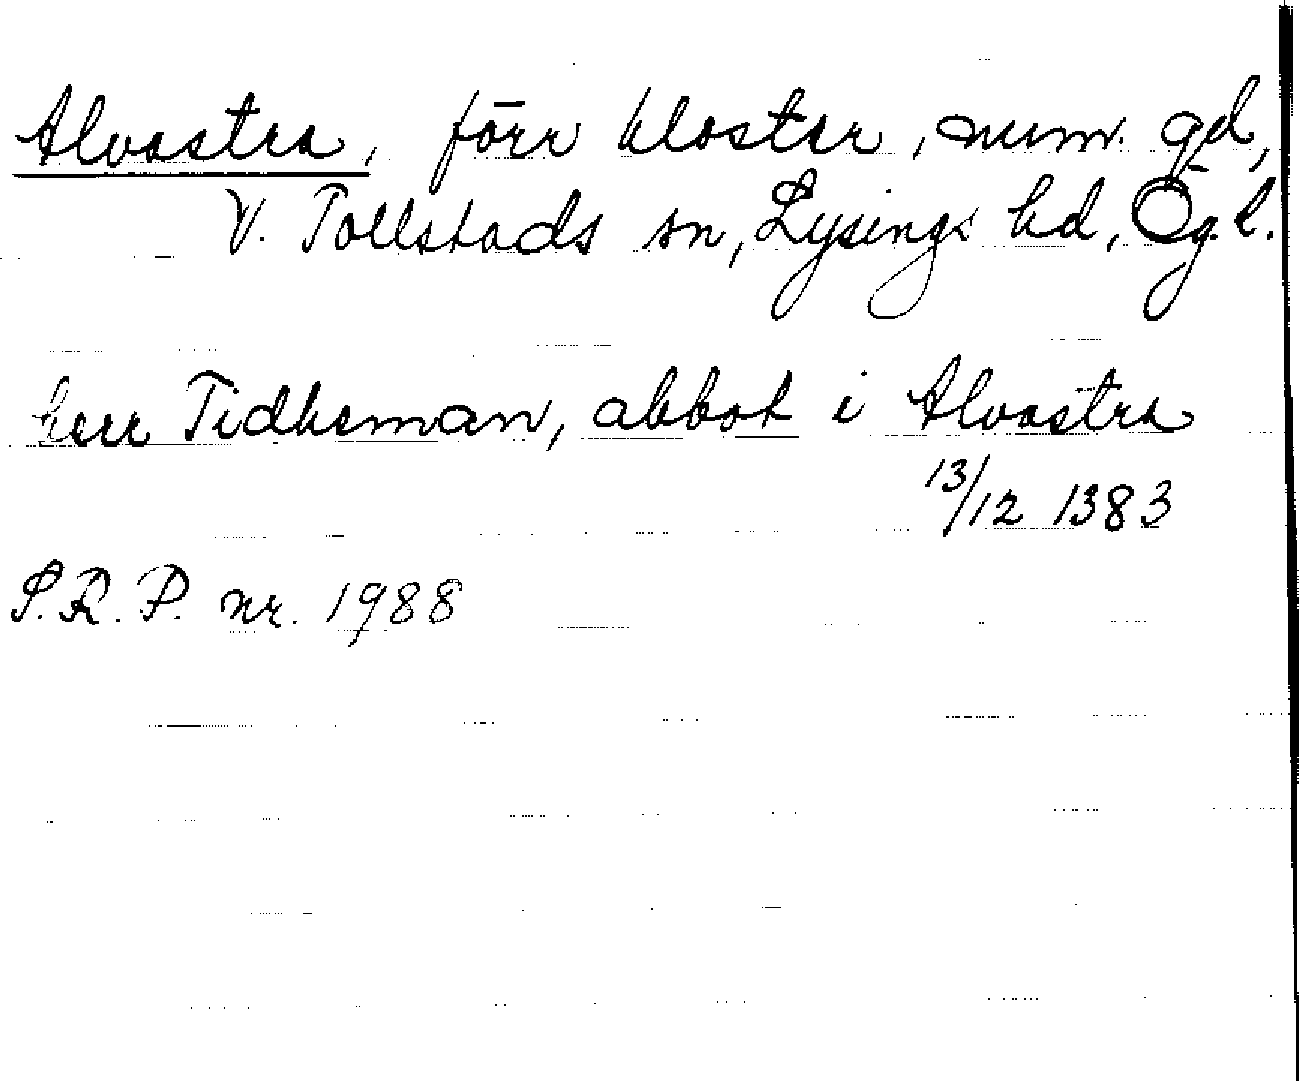 Alvastra, förr kloster, num. gd,
V. Tollstads sn, Lysings hd, Ög.l.
herr Tidheman, abbot i Alvastra
13/12 1383
S.R.P. nr. 1988